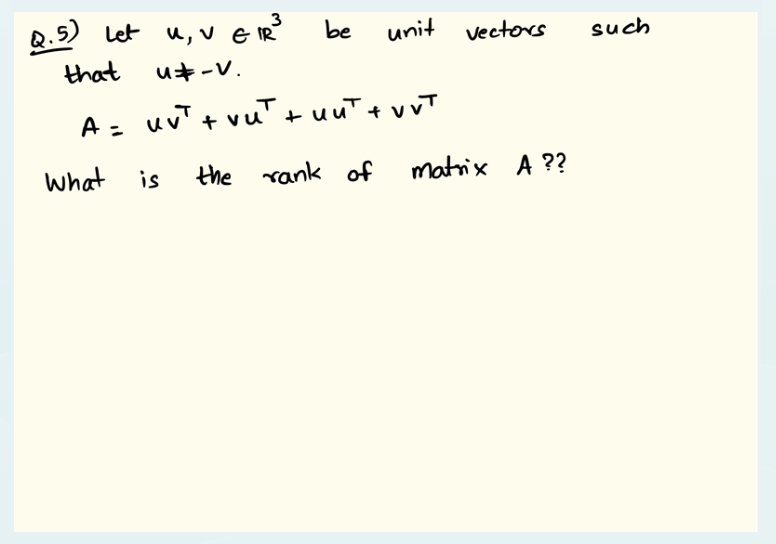 Q.5) Let u, v ∈ ℝ³ be unit vectors such
that u ≠ -v.
A = uvᵀ + vuᵀ + uuᵀ + vvᵀ
What is the rank of matrix A ??